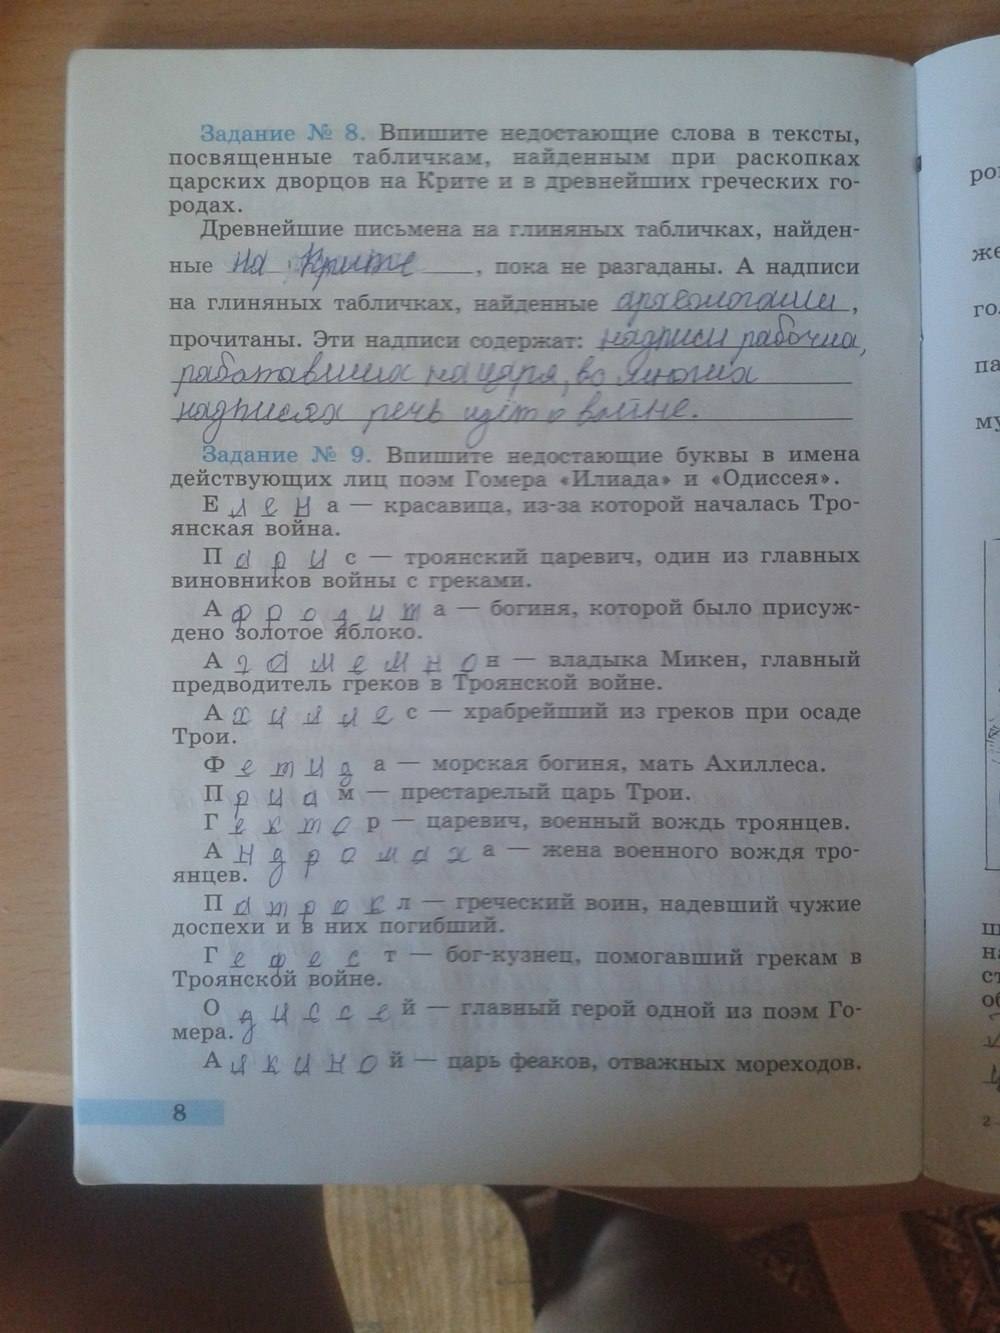 Задание № 8. Впишите недостающие слова в тексты,
посвященные табличкам, найденным при раскопках
царских дворцов на Крите и в древнейших греческих го-
родах.
Древнейшие письмена на глиняных табличках, найден-
ные на Крите, пока не разгаданы. А надписи
на глиняных табличках, найденные археологами,
прочитаны. Эти надписи содержат: надписи рабочих,
работавших на царя, во многих
надписях речь идёт о войне.
Задание № 9. Впишите недостающие буквы в имена
действующих лиц поэм Гомера «Илиада» и «Одиссея».
Елена — красавица, из-за которой началась Тро-
янская война.
Парис — троянский царевич, один из главных
виновников войны с греками.
Афродита — богиня, которой было присуж-
дено золотое яблоко.
Агамемнон — владыка Микен, главный
предводитель греков в Троянской войне.
Ахиллес — храбрейший из греков при осаде
Трои.
Фетида — морская богиня, мать Ахиллеса.
Приам — престарелый царь Трои.
Гектор — царевич, военный вождь троянцев.
Андромаха — жена военного вождя тро-
янцев.
Патрокл — греческий воин, надевший чужие
доспехи и в них погибший.
Гефест — бог-кузнец, помогавший грекам в
Троянской войне.
Одиссей — главный герой одной из поэм Го-
мера.
Алкиной — царь феаков, отважных мореходов.
8
2